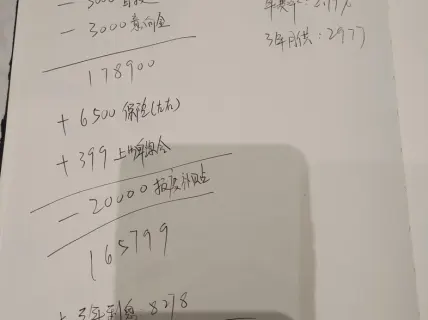 - 3000
- 3000 意向金
178900
+ 6500 保险(左右)
+ 399 上牌
- 20000 报废补贴
165799
+ 3年利息 8278
3年月供: 2977